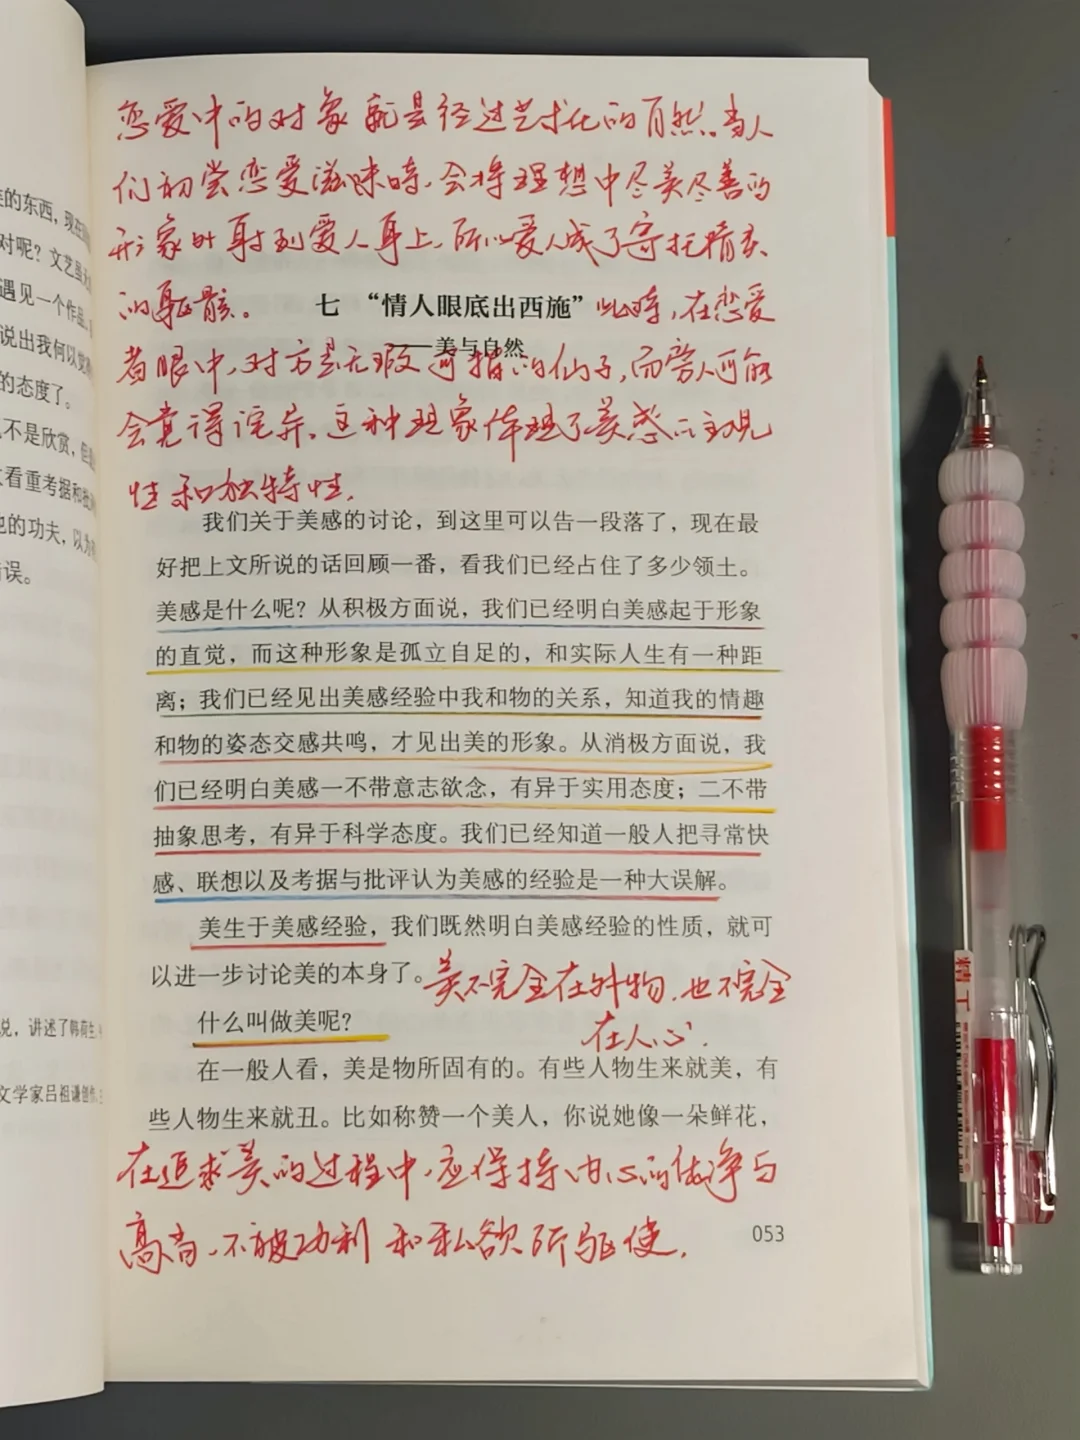 恋爱中的对象就是经过艺术化的自然。当人
们初尝恋爱滋味时，会将理想中尽美尽善的
形象映射到爱人身上，所以爱人成了寄托精灵
的躯骸。
七 “情人眼底出西施”
此时，在恋爱
——美与自然
者眼中，对方是无瑕可指的仙子，而旁人可能
会觉得诧异。这种现象体现了美感的主观
性和独特性。
我们关于美感的讨论，到这里可以告一段落了，现在最
好把上文所说的话回顾一番，看我们已经占住了多少领土。
美感是什么呢？从积极方面说，我们已经明白美感起于形象
的直觉，而这种形象是孤立自足的，和实际人生有一种距
离；我们已经见出美感经验中我和物的关系，知道我的情趣
和物的姿态交感共鸣，才见出美的形象。从消极方面说，我
们已经明白美感一不带意志欲念，有异于实用态度；二不带
抽象思考，有异于科学态度。我们已经知道一般人把寻常快
感、联想以及考据与批评认为美感的经验是一种大误解。
美生于美感经验，我们既然明白美感经验的性质，就可
以进一步讨论美的本身了。
美不完全在外物，也不完全
在人心。
什么叫做美呢？
在一般人看，美是物所固有的。有些人物生来就美，有
些人物生来就丑。比如称赞一个美人，你说她像一朵鲜花，
在追求美的过程中，应保持内心的纯净与
高尚，不被功利和私欲所驱使。
053
的东西，现在
对呢？文艺虽
遇见一个作品
说出我何以觉
的态度了。
不是欣赏，但
看重考据和批
的功夫，以为
误。
说，讲述了韩荷生
文学家吕祖谦创作
精工